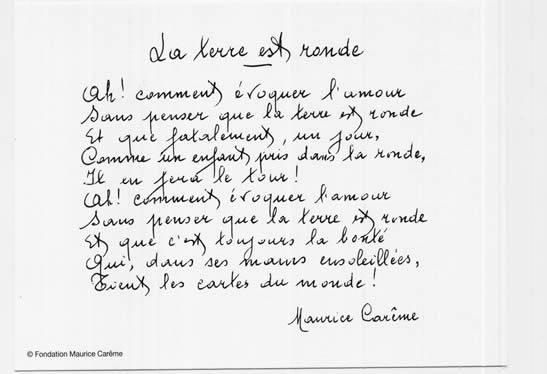 La terre est ronde
Ah! comment évoquer l'amour
Sans penser que la terre est ronde
Et que fatalement, un jour,
Comme un enfant pris dans la ronde,
Il en fera le tour!
Ah! comment évoquer l'amour
Sans penser que la terre est ronde
Et que c'est toujours la bonté
Qui, dans ses mains ensoleillées,
Tient les cartes du monde!
Maurice Carême
© Fondation Maurice Carême